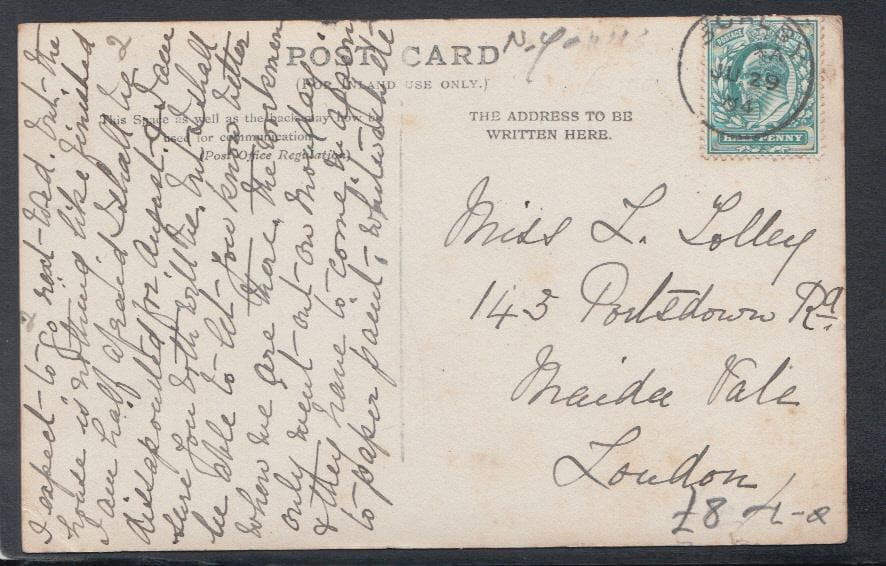 POST CARD
(FOR INLAND USE ONLY.)
This Space as well as the back may now be
used for communication.
(Post Office Regulation)
THE ADDRESS TO BE
WRITTEN HERE.
POSTAGE
HALFPENNY
JU 29
04
Miss L. Lolley
143 Portsdown Rd
Maida Vale
London
£8
I expect to go next Wed. but the
house is nothing like finished
I am half afraid I shall be
dissapointed for August. I am
sure you both will be, but I shall
be able to let you know better
when we are there, the workmen
only went out on Monday
& they have to come in again
to paper paint, whitewash etc